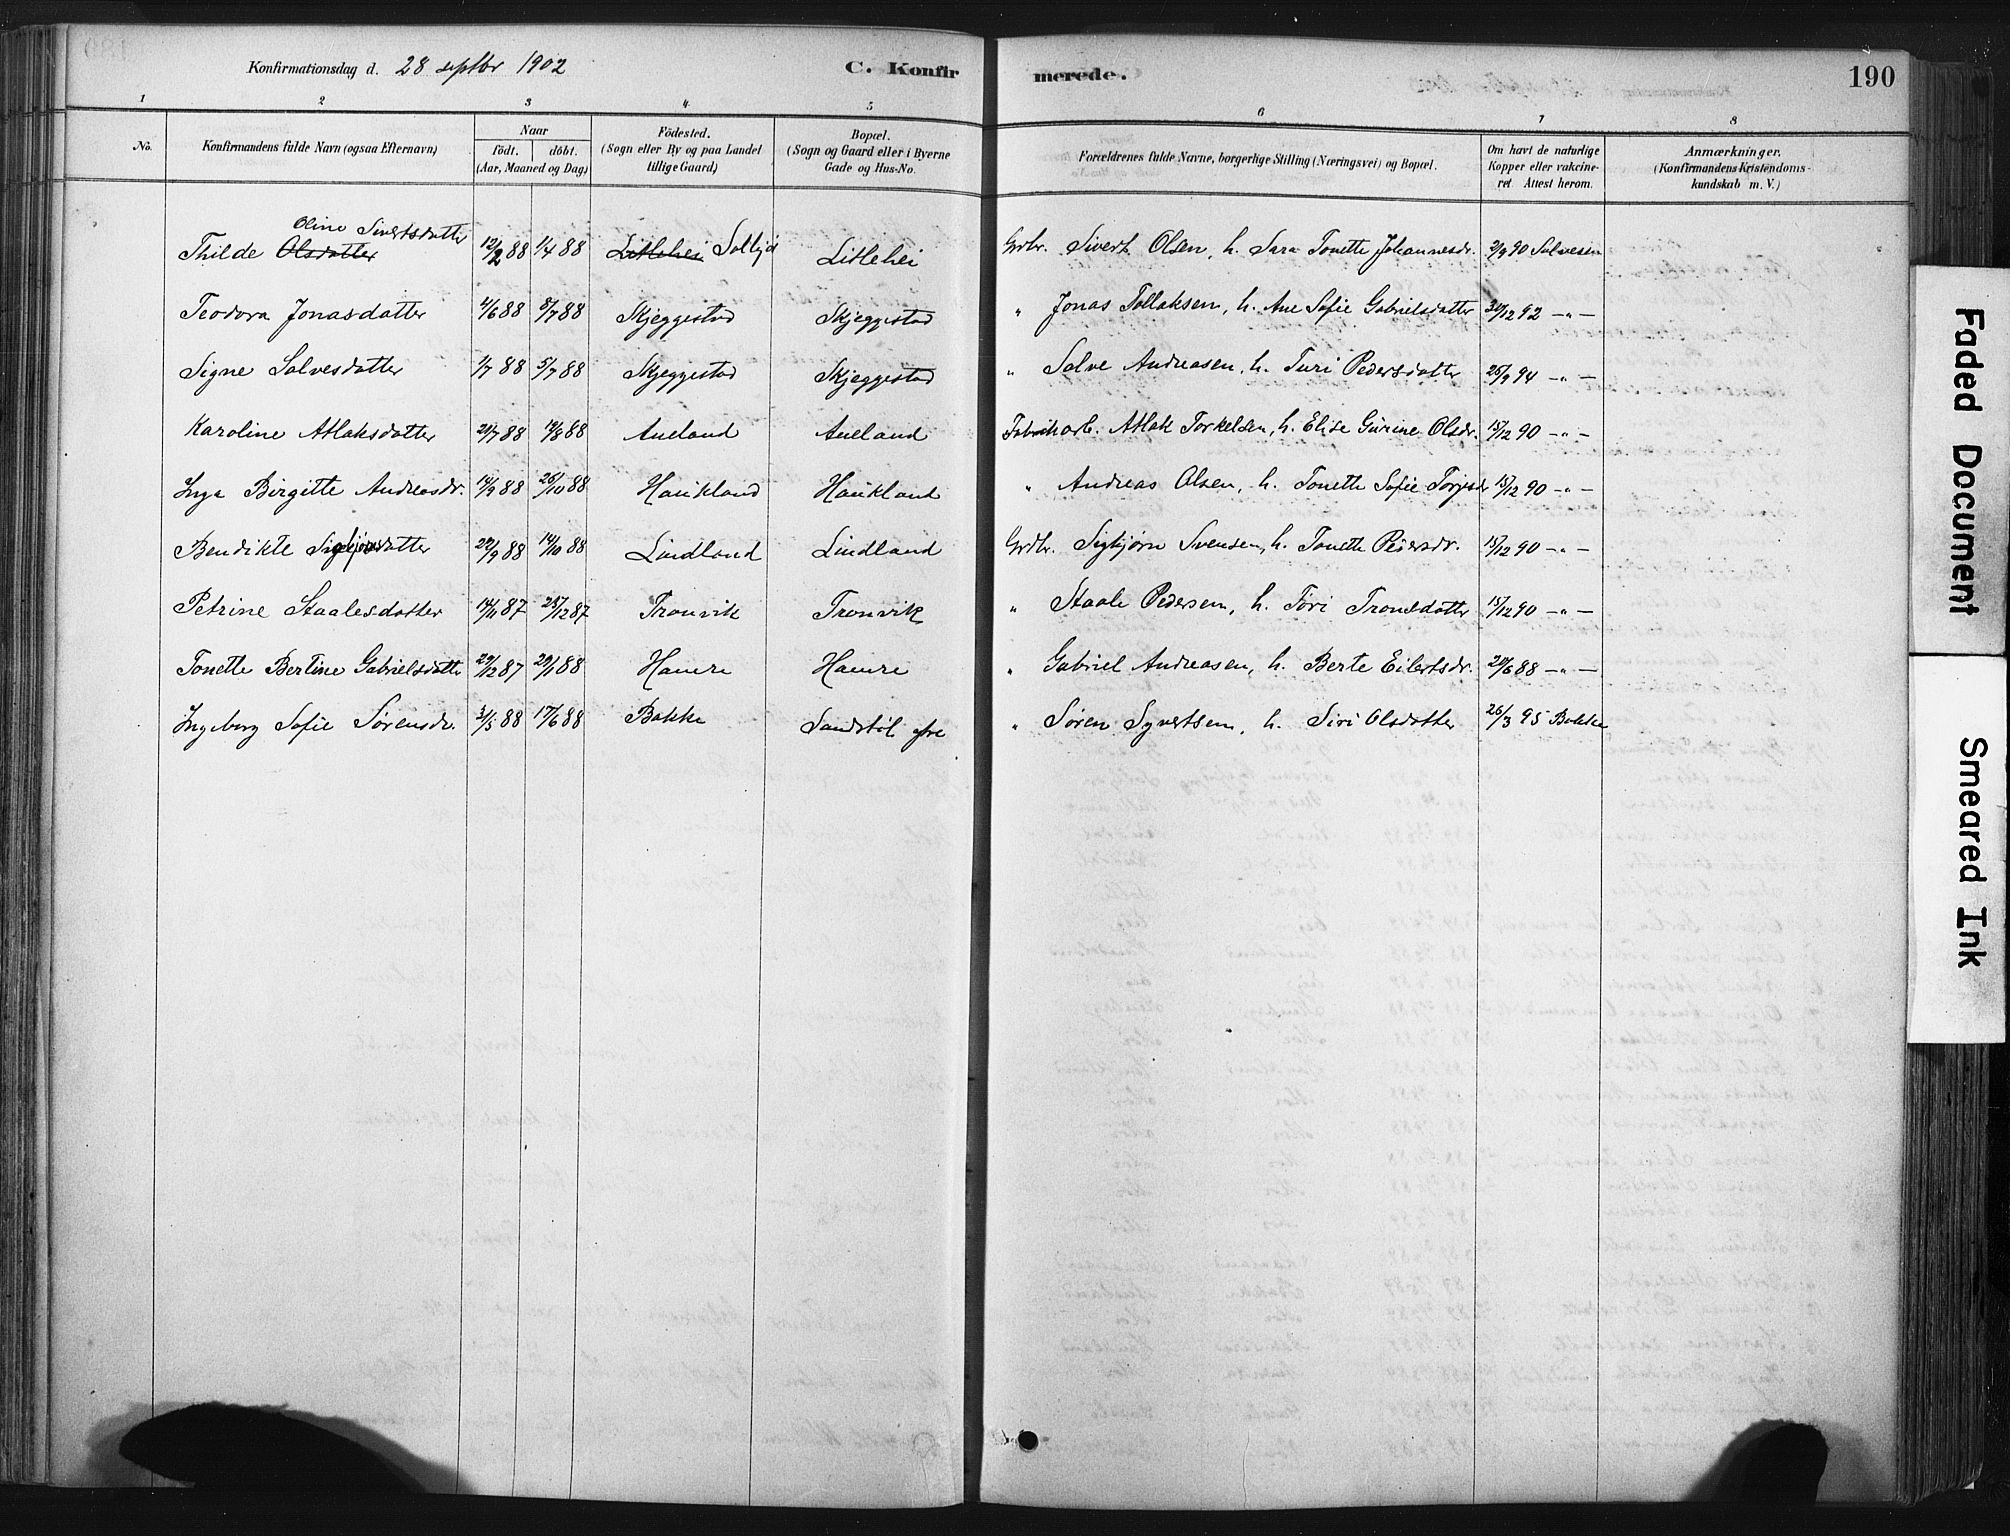 Konfirmationsdag d. 28 septbr 1902 C. Konfir merede. 190
1 2 3 4 5 6 7 8
No. Konfirmandens fulde Navn (ogsaa Efternavn) Naar Födt. döbt. (Aar, Maaned og Dag) Födested. (Sogn eller By og paa Landet tillige Gaard) Bopæl. (Sogn og Gaard eller i Byerne Gade og Hus-No. Forældrenes fulde Navne, borgerlige Stilling (Næringsvei) og Bopæl. Om havt de naturlige Kopper eller vakcineret. Attest herom. Anmærkninger. (Konfirmandens Kristendomskundskab m. V.)
Oline Sivertsdatter
Thilde Olsdatter 12/2 88 1/4 88 Litlehei Litlehei Grbr. Sivert Olsen, h. Sara Tonette Johannesdr. 2/9 90 Salvesen
Teodora Jonasdatter 4/6 88 8/7 88 Skjeggestad Skjeggestad " Jonas Tollaksen, h. Ane Sofie Gabrielsdatter 31/12 92 -"-
Signe Salvesdatter 1/7 88 5/7 88 Skjeggestad Skjeggestad " Salve Andreasen, h. Turi Pedersdatter 25/9 94 -"-
Karoline Atlaksdatter 21/7 88 19/8 88 Aneland Aneland Fabrikarb. Atlak Torkelsen, h. Elise Gurine Olsdr. 15/12 90 -"-
Inga Birgitte Andreasdr. 14/9 88 25/10 88 Haukland Haukland " Andreas Olsen, h. Tonette Sofie 15/12 90 -"-
Bendikte Sigbjørnsdatter 22/9 88 14/10 88 Lindland Lindland Grdbr. Sigbjørn Svensen, h. Tonette Pedersdr. 15/12 90 -"-
Petrine Staalesdatter 14/11 87 25/12 87 Tronvik Tronvik " Staale Pedersen, h. Töri Tronsdatter 15/12 90 -"-
Tonette Bertine Gabrielsdatte 29/12 87 29/1 88 Hamre Hamre " Gabriel Andreasen, h. Berte Eilertsdr. 29/6 88 -"-
Ingeborg Sofie Sörensdr. 3/5 88 17/6 88 Bakke Sandstöl øfre " Sören Syvertsen, h. Siri Olsdatter 26/3 95 Bakke
Faded Document
Smeared Ink